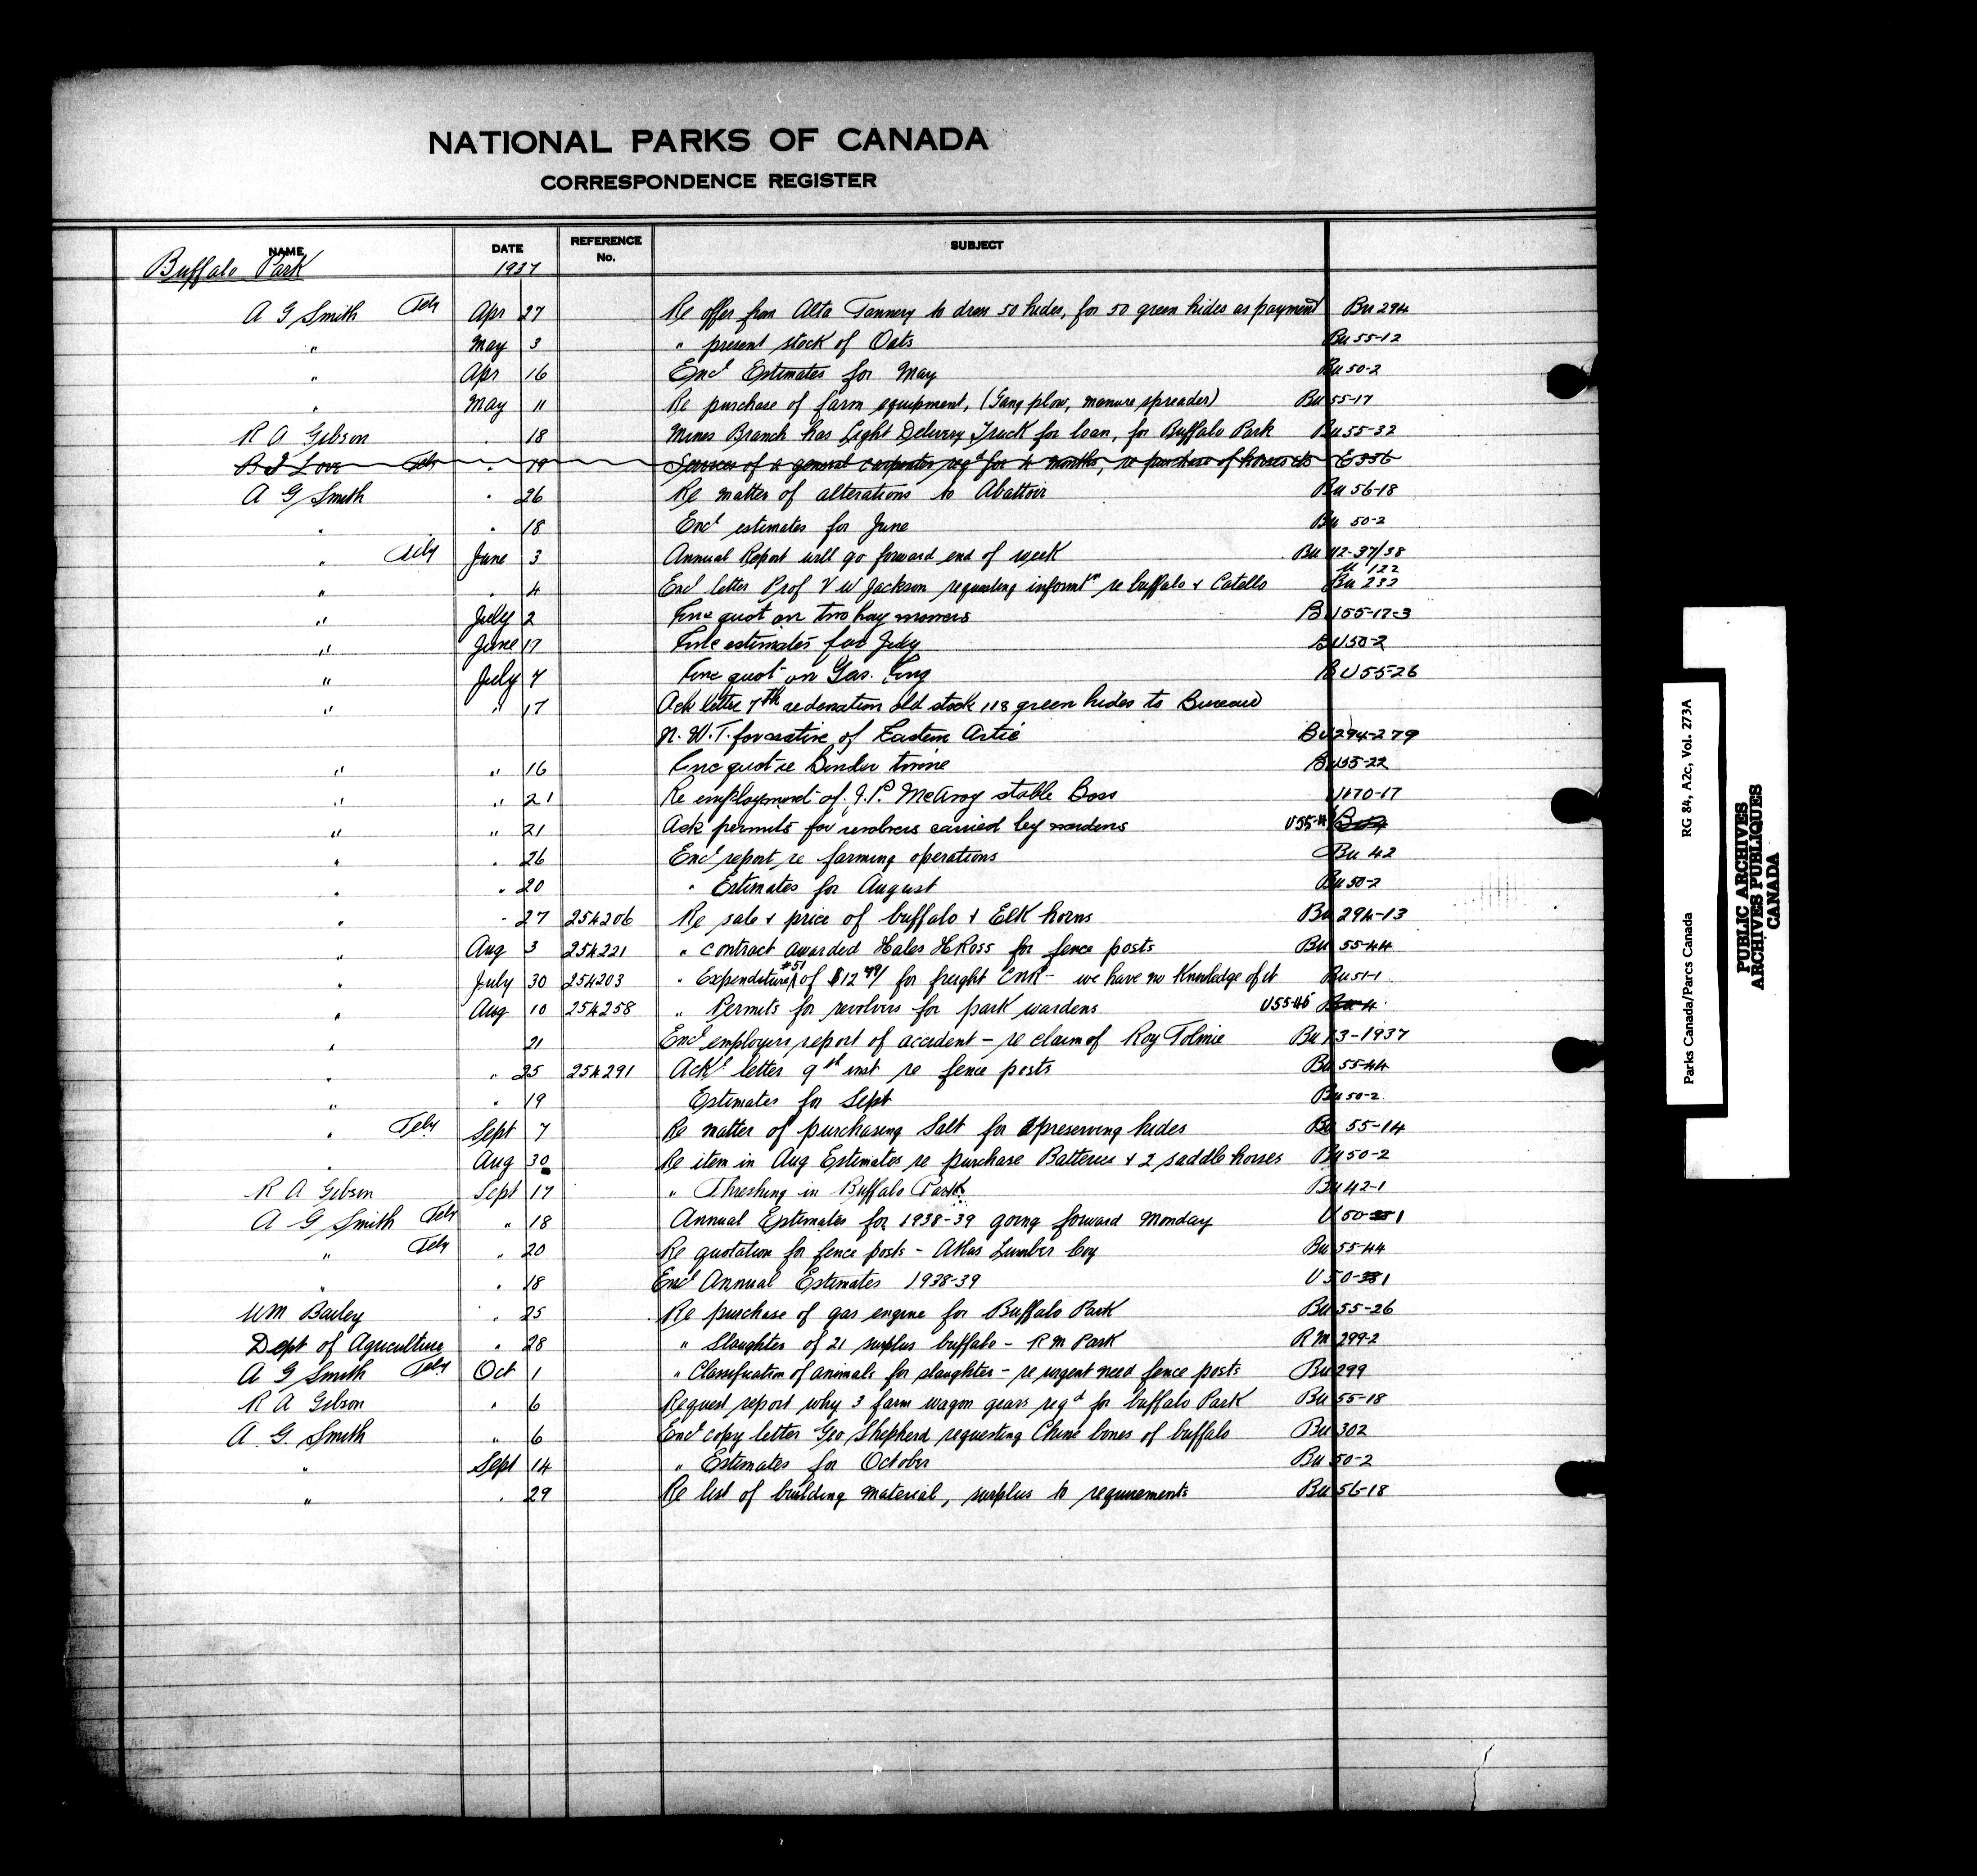 NATIONAL PARKS OF CANADA
CORRESPONDENCE REGISTER
NAME DATE REFERENCE No. SUBJECT
Buffalo Park 1937
A G Smith Tely Apr 27 Re offer from Alta Tannery to dress 50 hides, for 50 green hides as payment Bu 294
" May 3 " present stock of Oats Bu 55-12
" Apr 16 Encl Estimates for May Bu 50-2
" May 11 Re purchase of farm equipment, (Gang plow, manure spreader) Bu 55-17
R A Gibson " 18 Mines Branch has Light Delivery Truck for loan, for Buffalo Park Bu 55-32
B I Love Tely " 19 Services of a general carpenter reqd for 4 months, re purchase of horses etc E 336
A G Smith " 26 Re matter of alterations to Abattoir Bu 56-18
" " 18 Encl estimates for June Bu 50-2
" Tely June 3 Annual Report will go forward end of week Bu 112-37/38
" " 4 Encl letter Prof V W Jackson requesting informtn re buffalo & Catello U 122 Bu 232
" July 2 Enc quot on two hay mowers BU 55-17-3
" June 17 Enc estimates for July BU 50-2
" July 7 Enc quot on Gas. Eng BU 55-26
" " 17 Ack letter 7th re donation old stock 118 green hides to Bureau
N. W. T. for native of Eastern Artic Bu 294-279
" " 16 Enc quot re Binder twine Bu 55-22
" " 21 Re employment of J. P. McAvoy stable Boss U170-17
" " 21 Ack permits for revolvers carried by wardens U55-
" " 26 Encl report re farming operations Bu 42
" " 20 " Estimates for August Bu 50-2
" " 27 254206 Re sale & price of buffalo & Elk horns Bu 294-13
" Aug 3 254221 " contract awarded Hales H Ross for fence posts Bu 55-44
" July 30 254203 " Expenditure #51 of $12 49/ for freight CNR - we have no knowledge of it Bu 51-1
" Aug 10 254258 " Permits for revolvers for park wardens U55-45 Bu 4
" 21 Encl employers report of accident - re claim of Roy Tolmie Bu 13-1937
" " 25 254291 Ackd letter 9th inst re fence posts Bu 55-44
" " 19 Estimates for Sept Bu 50-2
" Tely Sept 7 Re matter of purchasing Salt for preserving hides Bu 55-14
" Aug 30 Re item in Aug Estimates re purchase Batteries & 2 saddle horses Bu 50-2
R A Gibson Sept 17 " Threshing in Buffalo Park Bu 42-1
A G Smith Tely " 18 Annual Estimates for 1938-39 going forward Monday U 50-1
" Tely " 20 Re quotation for fence posts - Atlas Lumber Coy Bu 55-44
" " 18 Encl Annual Estimates 1938-39 U 50-1
WM Bailey " 25 Re purchase of gas engine for Buffalo Park Bu 55-26
Dept of Agriculture " 28 " Slaughter of 21 surplus buffalo - R M Park R M 299-2
A G Smith Tely Oct 1 " Classification of animals for slaughter - re urgent need fence posts Bu 299
R A Gibson " 6 Request report why 3 farm wagon gears reqd for buffalo Park Bu 55-18
A. G. Smith " 6 Encl copy letter Geo Shepherd requesting Chine bones of buffalo Bu 302
" Sept 14 " Estimates for October Bu 50-2
" " 29 Re list of building material, surplus to requirements Bu 56-18
Parks Canada/Parcs Canada RG 84, A2c, Vol. 273A
PUBLIC ARCHIVES
ARCHIVES PUBLIQUES
CANADA